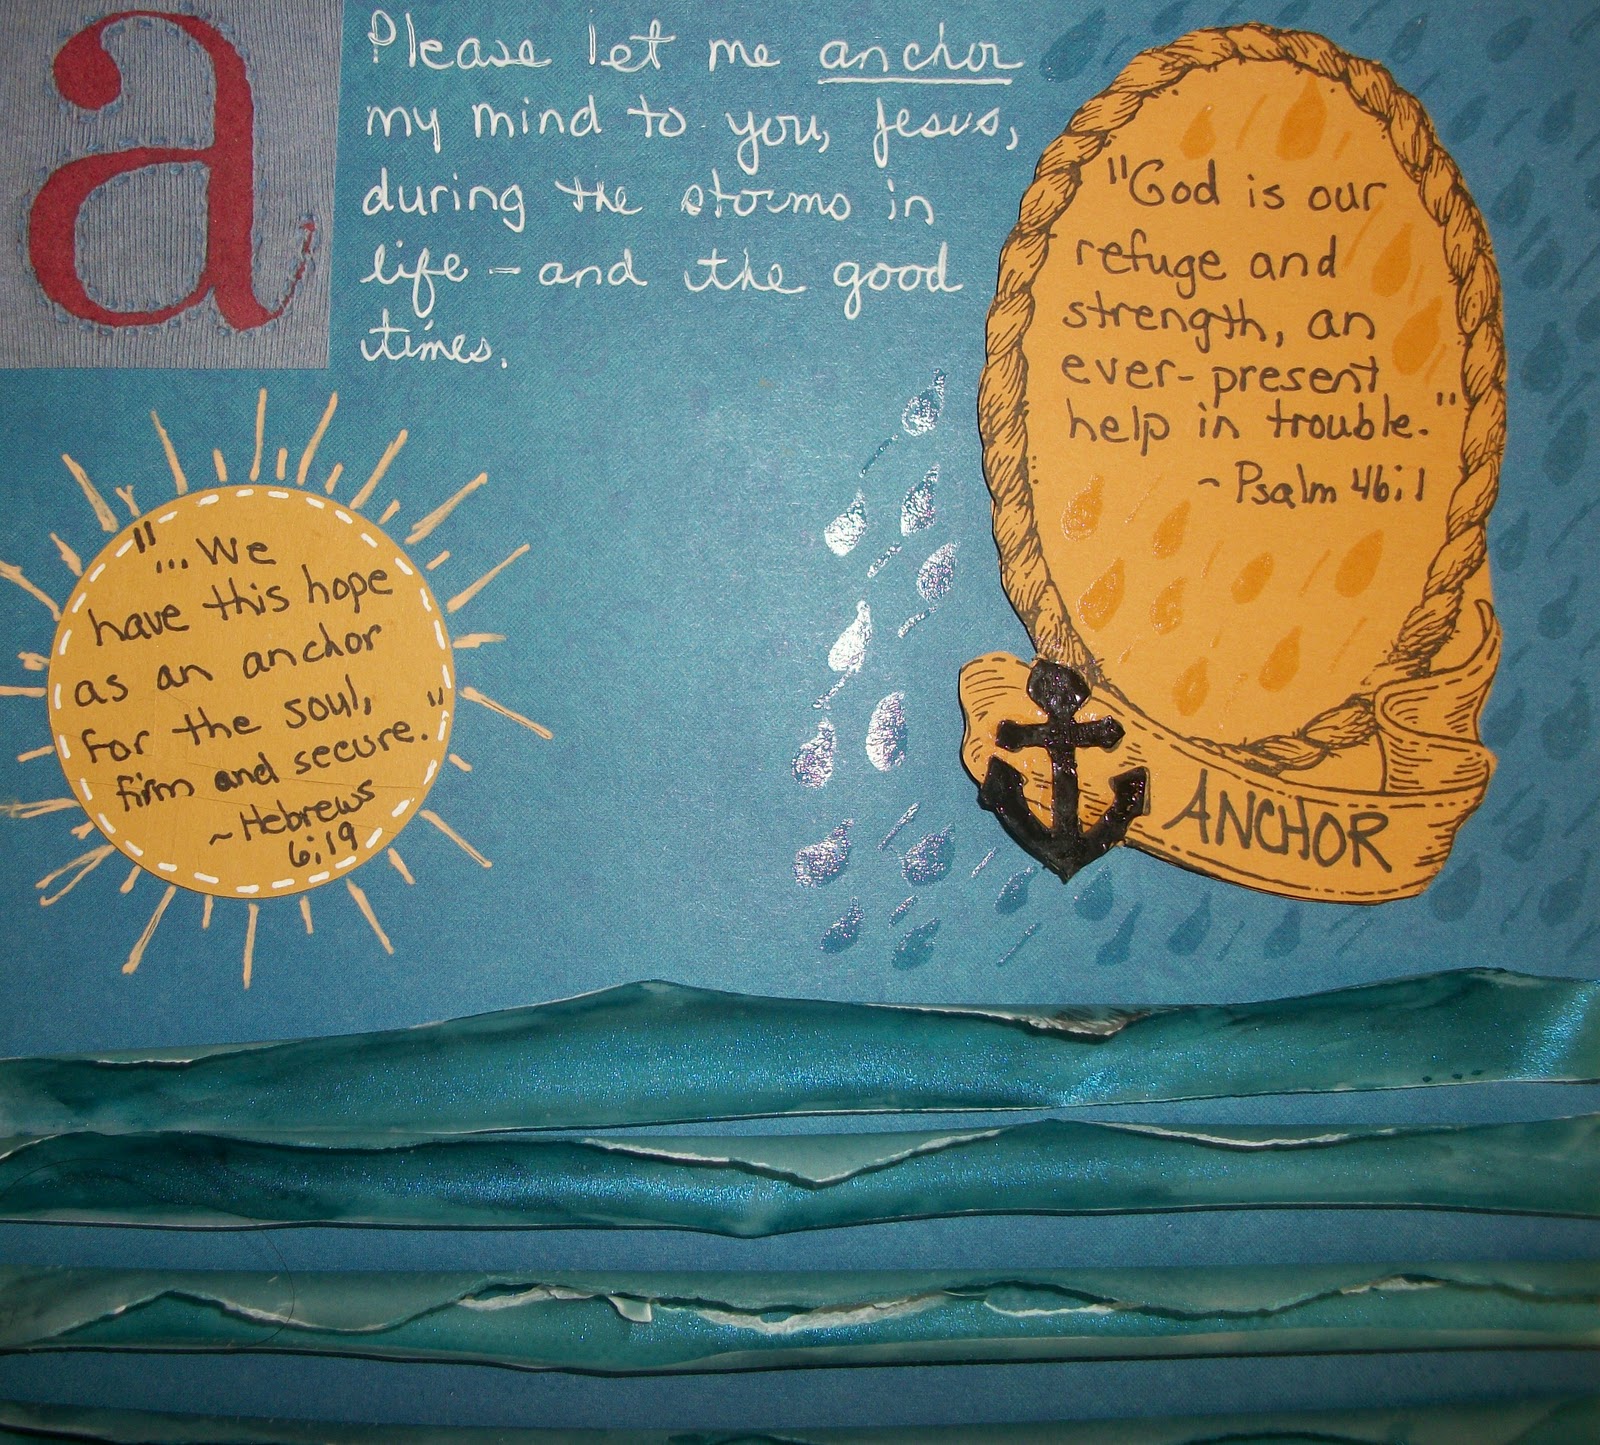 a
Please let me anchor
my mind to you, Jesus,
during the storms in
life - and the good
times.
"God is our
refuge and
strength, an
ever-present
help in trouble."
~ Psalm 46:1
ANCHOR
"...We
have this hope
as an anchor
for the soul,
firm and secure."
~Hebrews
6:19